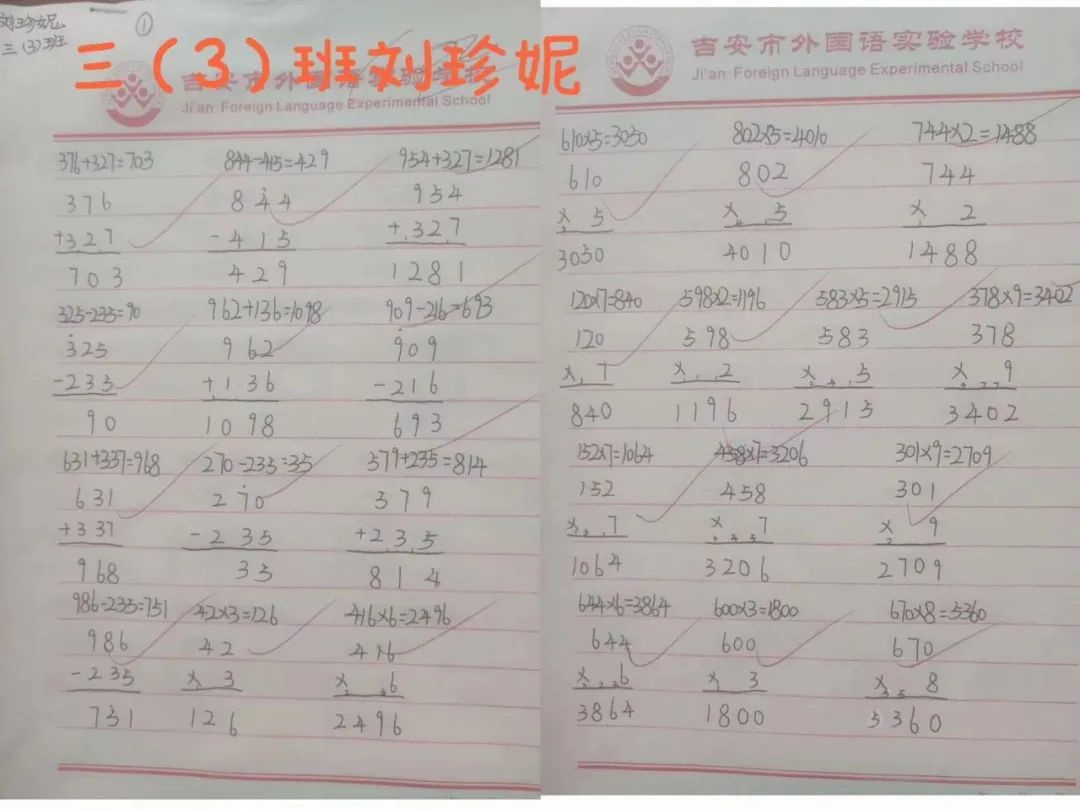 刘珍妮
三（3）班
①
三（3）班刘珍妮
吉安市外国语实验学校
Ji'an Foreign Language Experimental School
376+327=703 844-415=429 954+327=1281
376 844 954
+327 -415 +327
703 429 1281
325-235=90 962+136=1098 909-216=693
325 962 909
-235 +136 -216
90 1098 693
631+337=968 270-235=35 579+235=814
631 270 579
+337 -235 +235
968 35 814
986-235=751 42×3=126 416×6=2496
986 42 416
-235 × 3 × 6
751 126 2496
吉安市外国语实验学校
Ji'an Foreign Language Experimental School
610×5=3050 802×5=4010 744×2=1488
610 802 744
× 5 × 5 × 2
3050 4010 1488
120×7=840 598×2=1196 583×5=2915 378×9=3402
120 598 583 378
× 7 × 2 × 5 × 9
840 1196 2915 3402
152×7=1064 458×7=3206 301×9=2709
152 458 301
× 7 × 7 × 9
1064 3206 2709
644×6=3864 600×3=1800 670×8=5360
644 600 670
× 6 × 3 × 8
3864 1800 5360